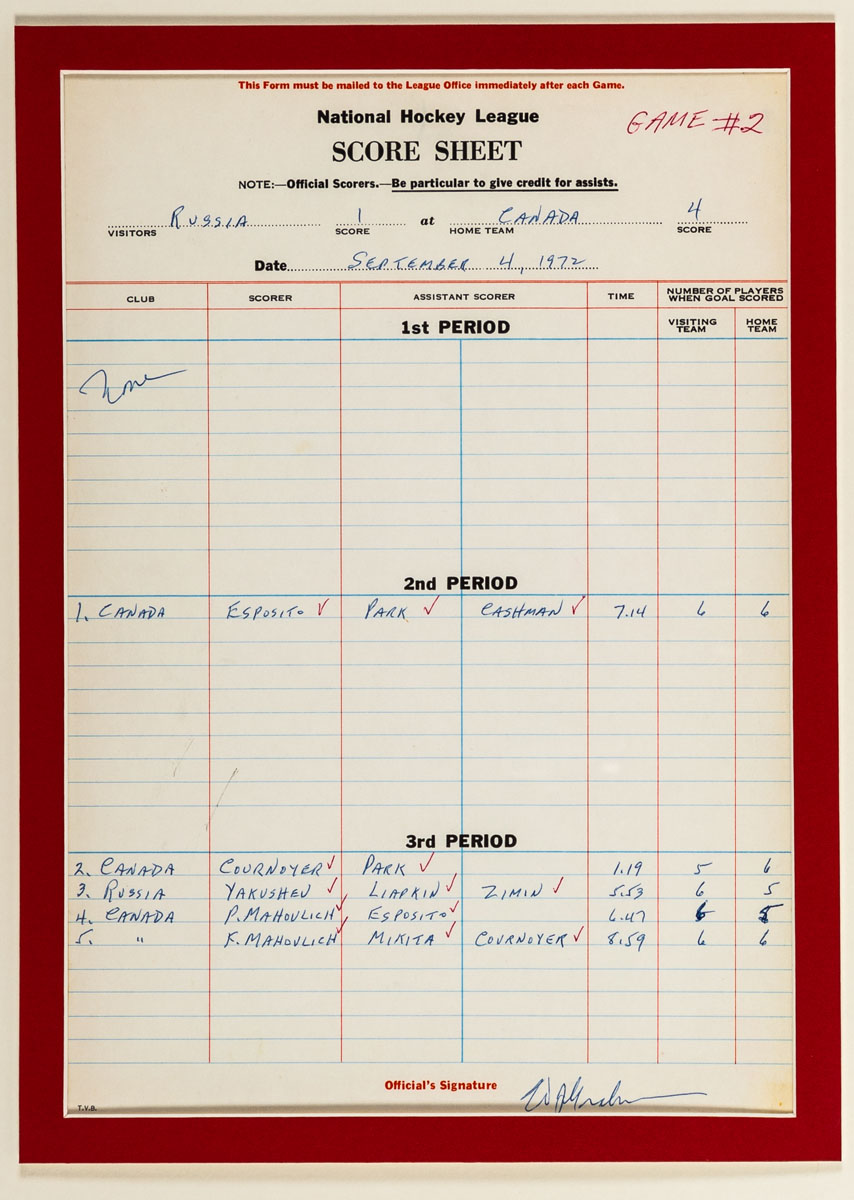 This Form must be mailed to the League Office immediately after each Game.
National Hockey League
GAME #2
SCORE SHEET
NOTE:—Official Scorers.—Be particular to give credit for assists.
RUSSIA 1 at CANADA 4
VISITORS SCORE HOME TEAM SCORE
Date SEPTEMBER 4, 1972
CLUB SCORER ASSISTANT SCORER TIME NUMBER OF PLAYERS WHEN GOAL SCORED
1st PERIOD VISITING TEAM HOME TEAM
None
2nd PERIOD
1. CANADA ESPOSITO ✓ PARK ✓ CASHMAN ✓ 7.14 6 6
3rd PERIOD
2. CANADA COURNOYER ✓ PARK ✓ 1.19 5 6
3. RUSSIA YAKUSHEV ✓ LIAPKIN ✓ ZIMIN ✓ 5.53 6 5
4. CANADA P. MAHOVLICH ✓ ESPOSITO ✓ 6.47 6 5
5. " F. MAHOVLICH ✓ MIKITA ✓ COURNOYER ✓ 8.59 6 6
Official's Signature
T.V.B.